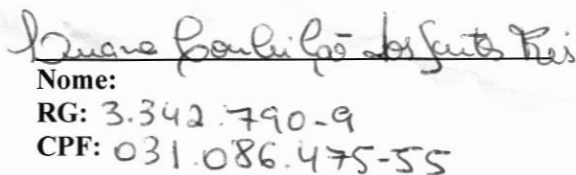 Luana Conceição dos Santos Reis
Nome:
RG: 3.342.790-9
CPF: 031.086.475-55